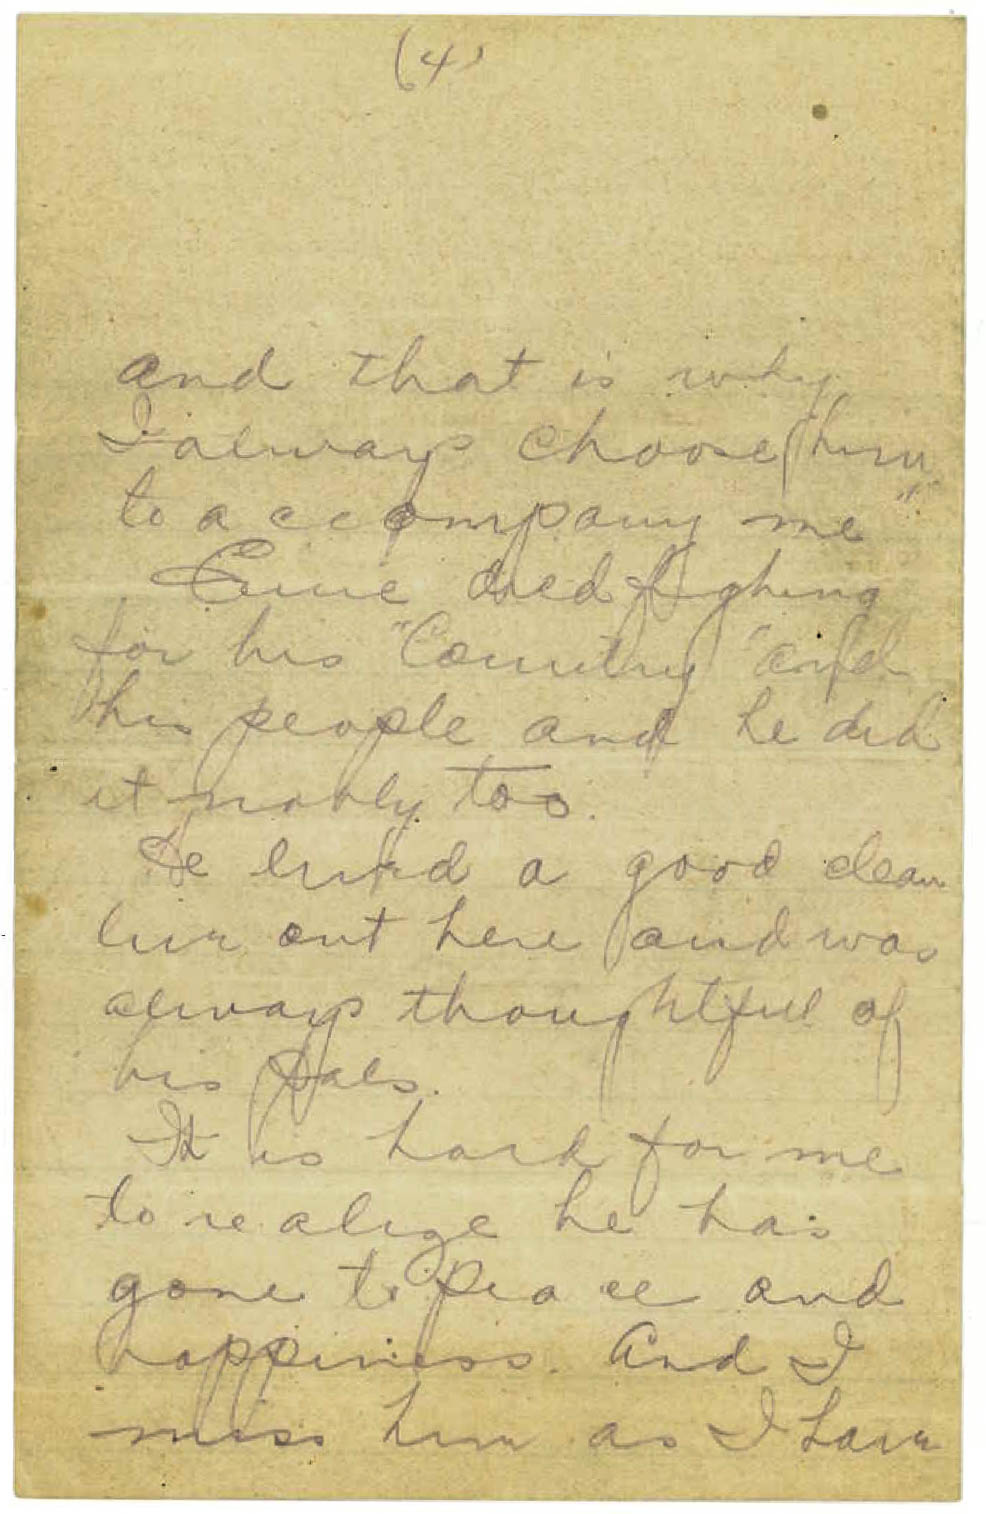 (4)
and that is why
I always choose him
to accompany me"
died fighing
for his "Country" and
his people and he did
it nobly too.
He lived a good clean
live out here and was
always thoughtful of
his pals.
It is hard for me
to realize he has
gone to peace and
happiness. And I
miss him as I have